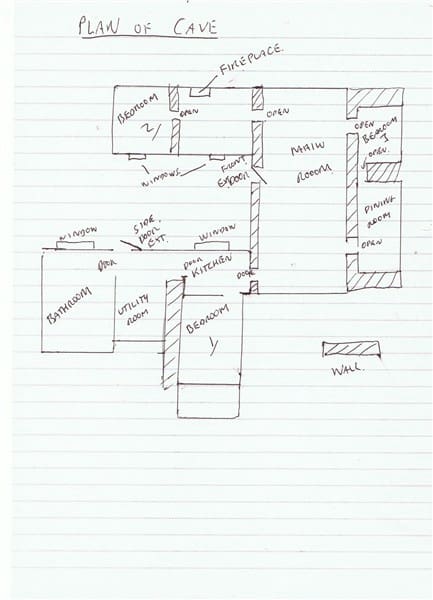 PLAN OF CAVE
FIREPLACE.
BEDROOM
2/
OPEN
OPEN
OPEN
BEDROOM
OPEN.
MAIN
ROOOM
WINDOWS
FRONT
DOOR
DINING
ROOM
OPEN
WINDOW
SIDE
DOOR
EXT.
WINDOW
DOOR
DOOR
KITCHEN
DOOR
BATHROOM
UTILITY
ROOM
BEDROOM
1/
WALL.